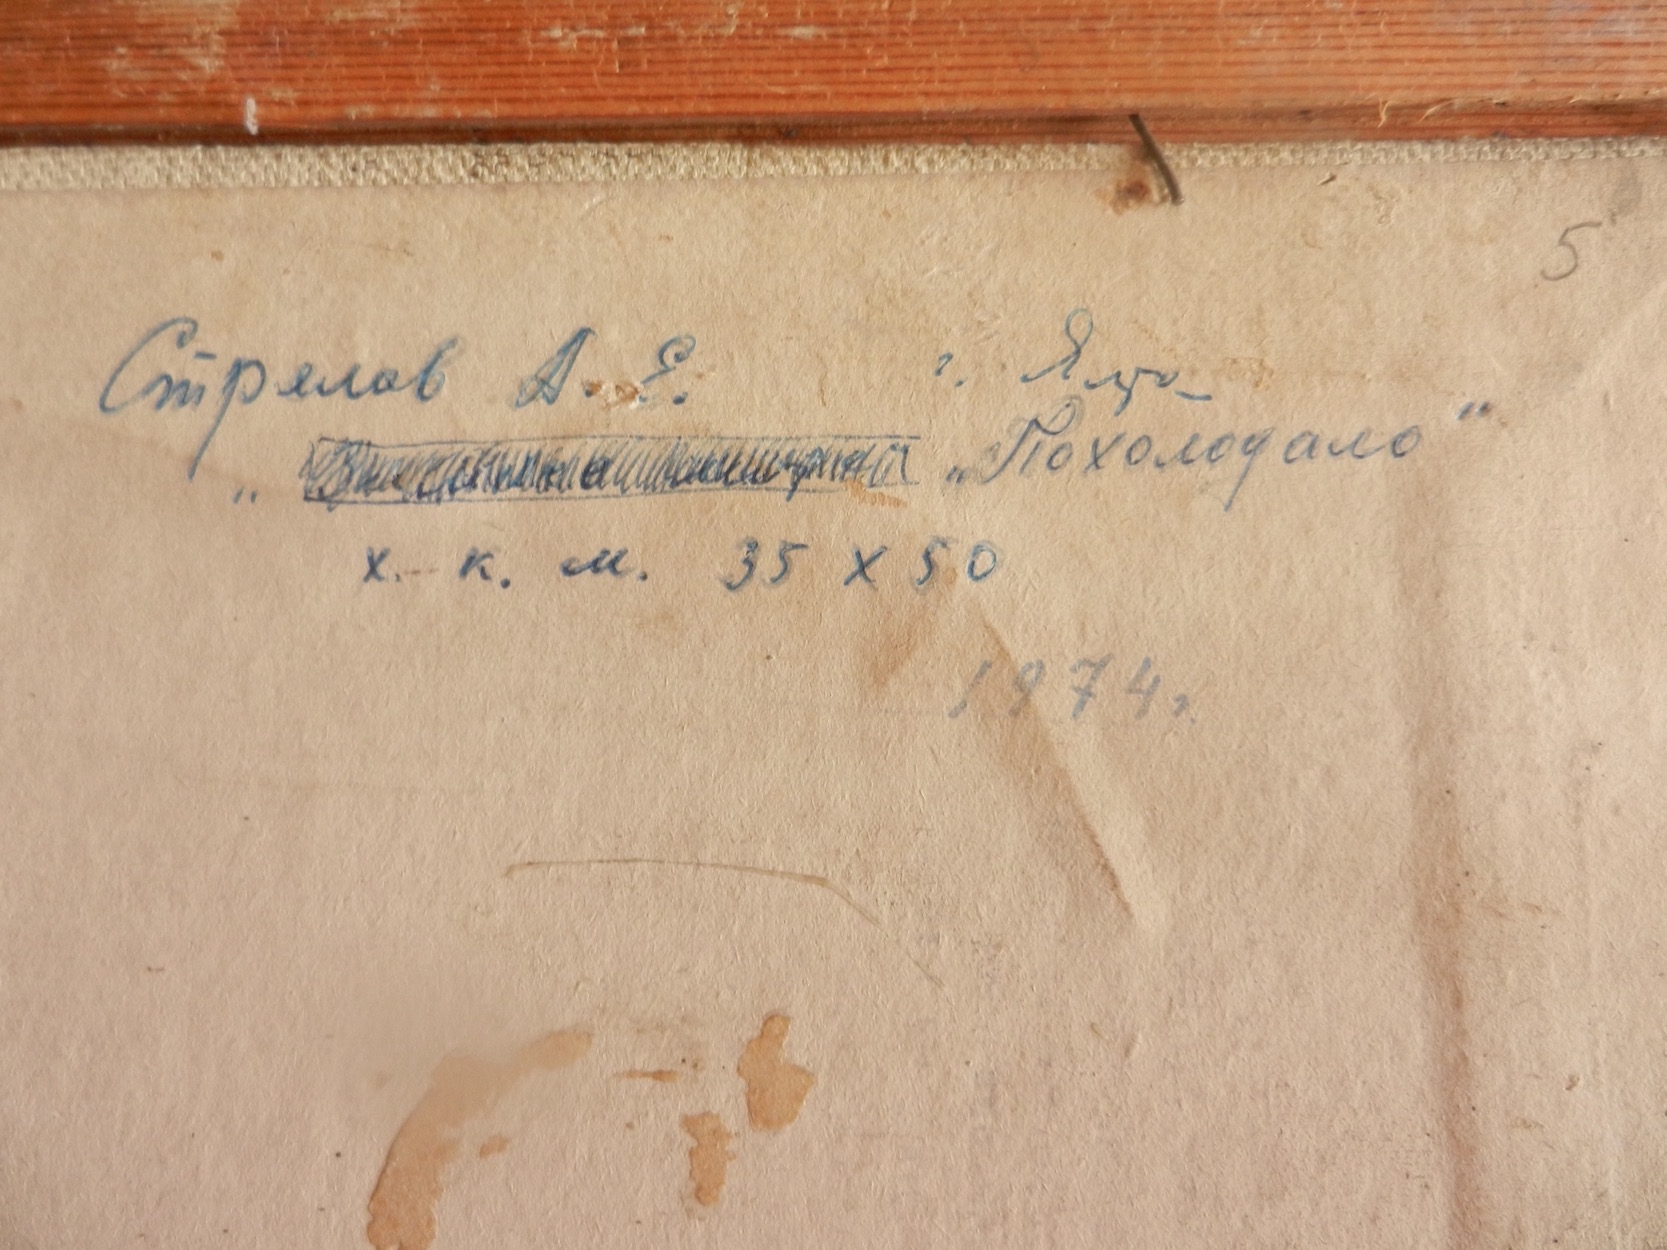 5
Стрелов А. Е. г. Ялта
„ „Похолодало"
х. к. м. 35 х 50
1974г.